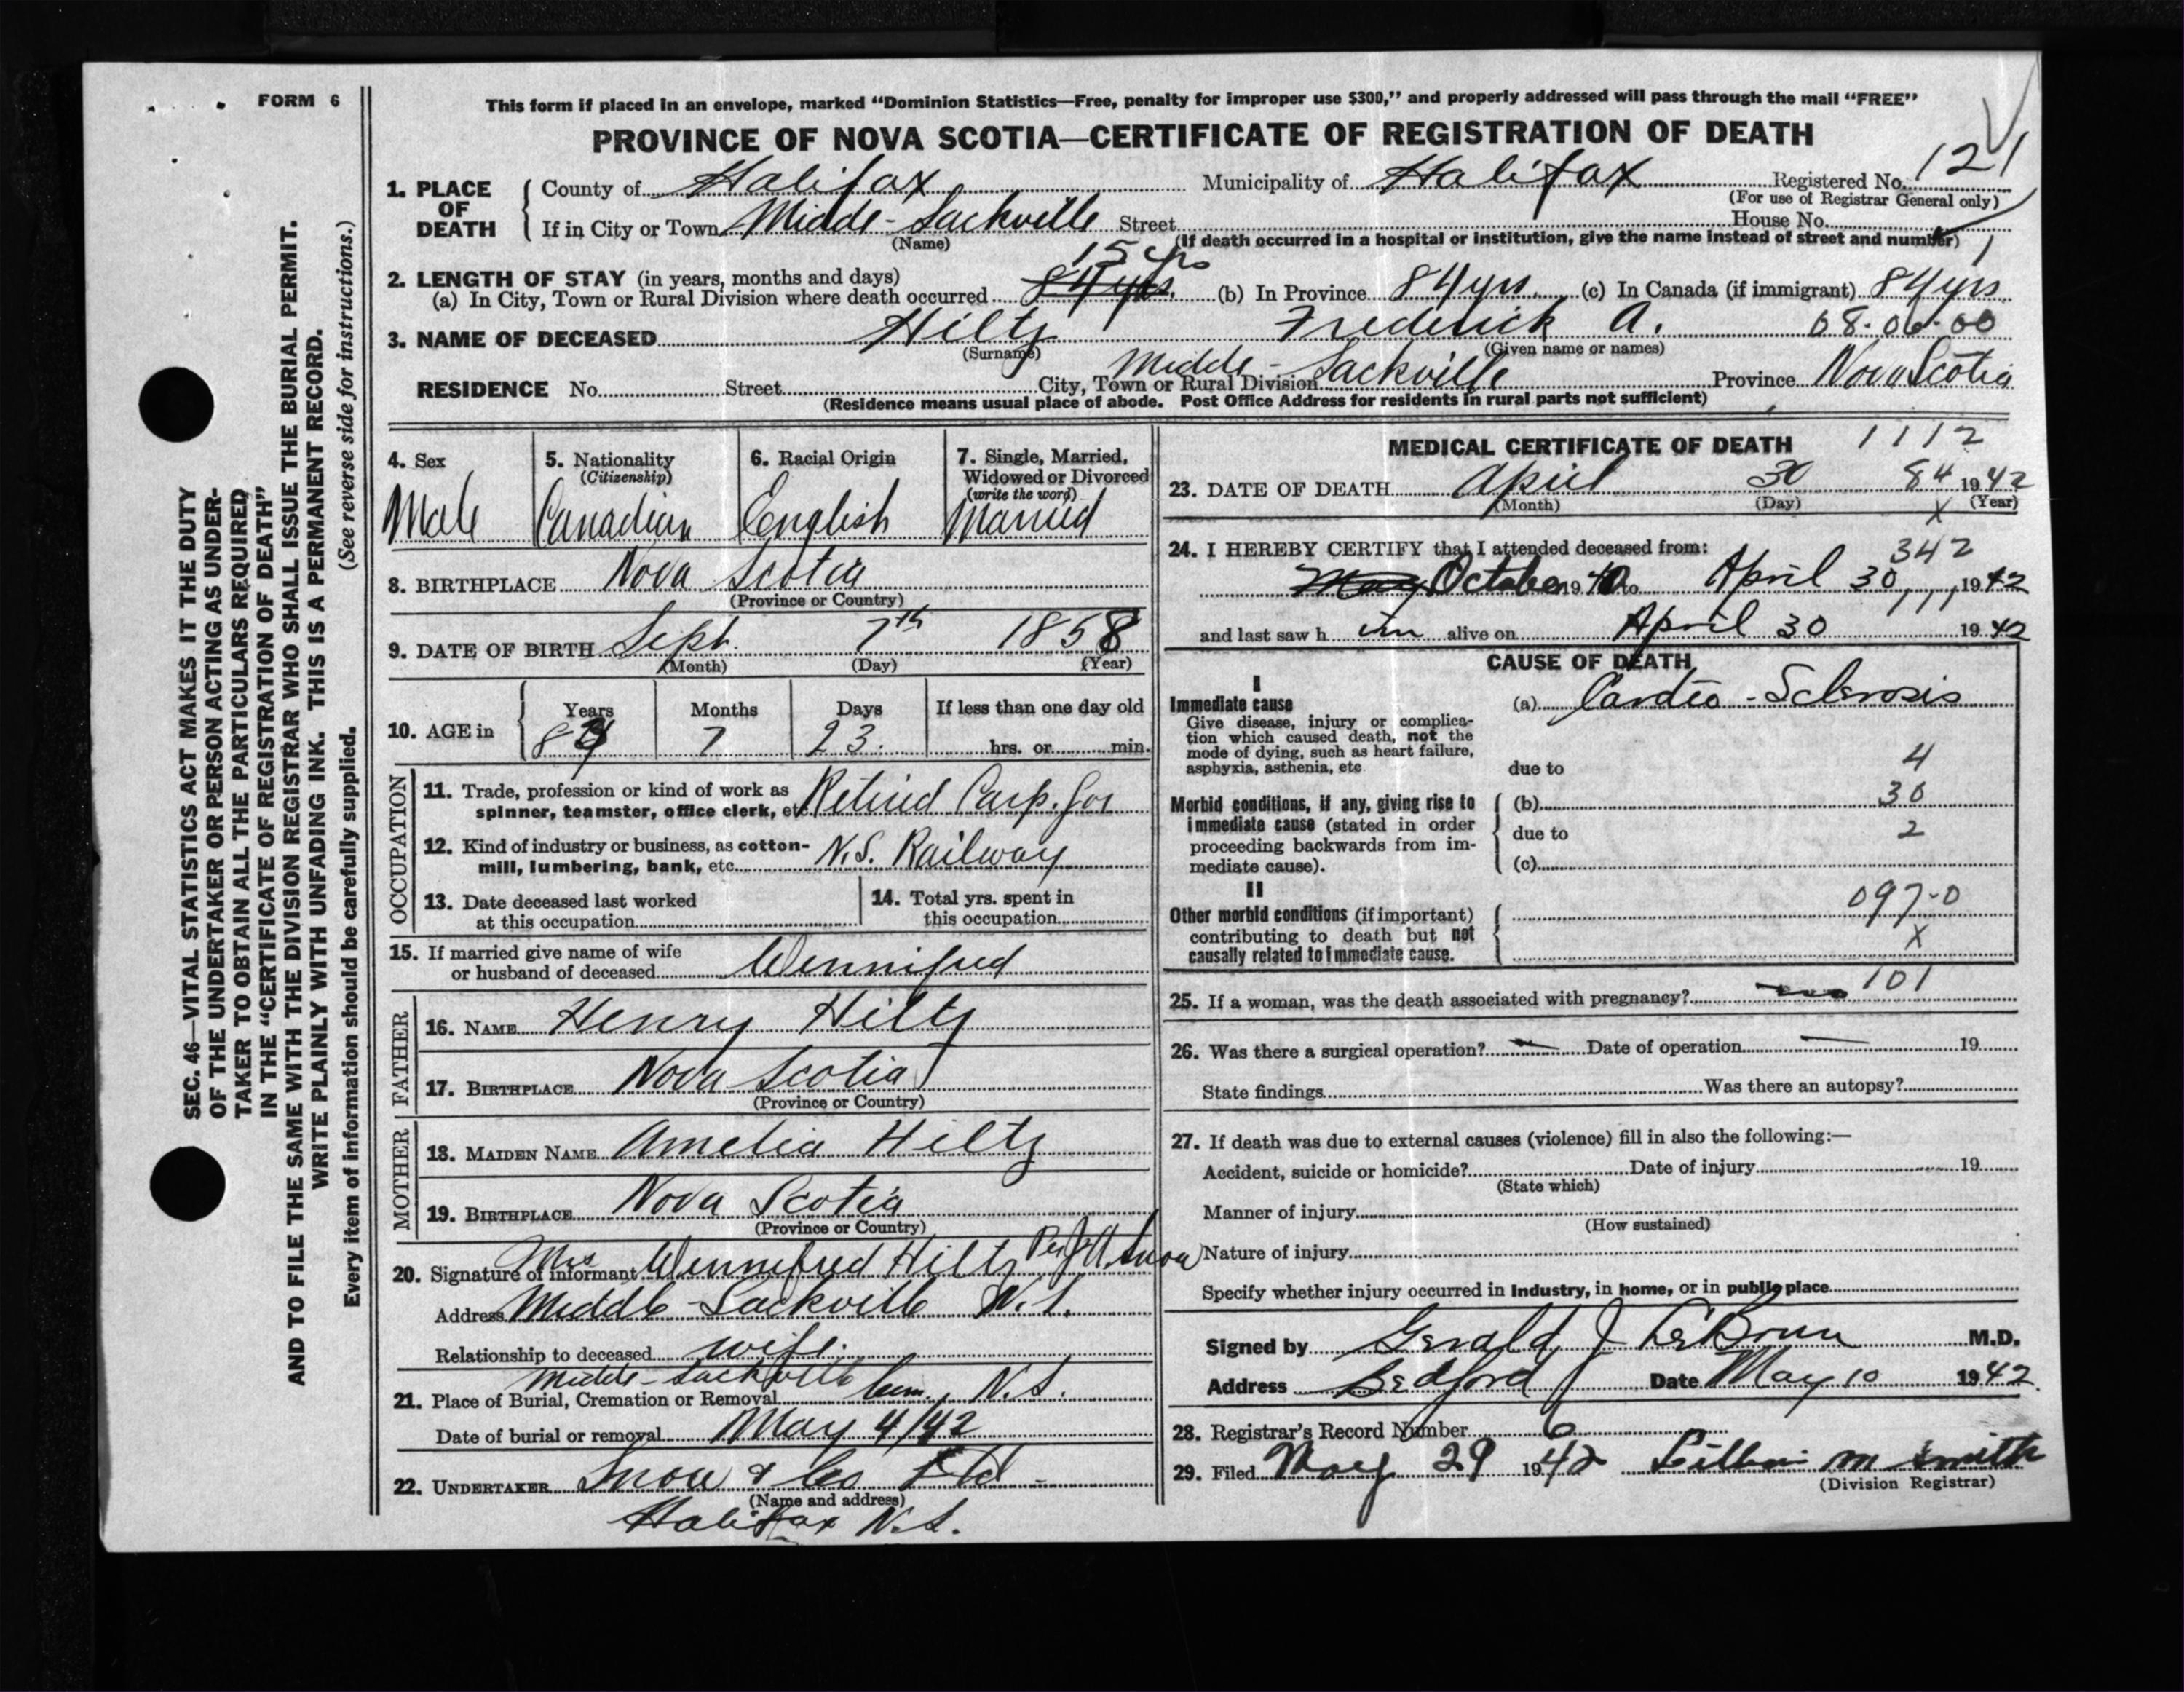 FORM 6
This form if placed in an envelope, marked “Dominion Statistics—Free, penalty for improper use $300,” and properly addressed will pass through the mail “FREE”
PROVINCE OF NOVA SCOTIA—CERTIFICATE OF REGISTRATION OF DEATH
1. PLACE OF DEATH
County of Halifax Municipality of Halifax Registered No. 121
(For use of Registrar General only)
If in City or Town Middle-Sackville Street House No.
(Name) (If death occurred in a hospital or institution, give the name instead of street and number) 1
15 yrs
2. LENGTH OF STAY (in years, months and days)
(a) In City, Town or Rural Division where death occurred 84 yrs. (b) In Province 84 yrs. (c) In Canada (if immigrant) 84 yrs.
3. NAME OF DECEASED Hiltz Frederick A. 08-06-00
(Surname) (Given name or names)
RESIDENCE No. Street City, Town or Rural Division Middle-Sackville Province Nova Scotia
(Residence means usual place of abode. Post Office Address for residents in rural parts not sufficient)
4. Sex
Male
5. Nationality
(Citizenship)
Canadian
6. Racial Origin
English
7. Single, Married,
Widowed or Divorced
(write the word)
Married
8. BIRTHPLACE Nova Scotia
(Province or Country)
9. DATE OF BIRTH Sept. 7th 1858
(Month) (Day) (Year)
10. AGE in
Years Months Days If less than one day old
7 23. hrs. or min.
OCCUPATION
11. Trade, profession or kind of work as
spinner, teamster, office clerk, etc. Retired Carp.
12. Kind of industry or business, as cotton-
mill, lumbering, bank, etc. N.S. Railway
13. Date deceased last worked
at this occupation
14. Total yrs. spent in
this occupation
15. If married give name of wife
or husband of deceased Wennifred
FATHER
16. NAME Henry Hiltz
17. BIRTHPLACE Nova Scotia
(Province or Country)
MOTHER
18. MAIDEN NAME Amelia Hiltz
19. BIRTHPLACE Nova Scotia
(Province or Country)
20. Signature of informant Mrs Wennifred Hiltz Per J.A. Snow
Address Middle-Sackville N.S.
Relationship to deceased wife.
21. Place of Burial, Cremation or Removal Middle-Sackville Cem., N.S.
Date of burial or removal May 4/42
22. UNDERTAKER Snow & Co Ltd -
(Name and address)
Halifax N.S.
MEDICAL CERTIFICATE OF DEATH 1112
23. DATE OF DEATH April 30 84 1942
(Month) (Day) (Year)
X
24. I HEREBY CERTIFY that I attended deceased from:
342
May October 1940 to April 30 1942
111
and last saw h im alive on April 30 1942
CAUSE OF DEATH
I
Immediate cause
Give disease, injury or complica-
tion which caused death, not the
mode of dying, such as heart failure,
asphyxia, asthenia, etc
(a) Cardio-Sclerosis
4
due to
Morbid conditions, if any, giving rise to
immediate cause (stated in order
proceeding backwards from im-
mediate cause).
(b) 30
due to 2
(c)
II
Other morbid conditions (if important)
contributing to death but not
causally related to immediate cause.
097-0
X
101
25. If a woman, was the death associated with pregnancy?
26. Was there a surgical operation? — Date of operation — 19
State findings Was there an autopsy?
27. If death was due to external causes (violence) fill in also the following:—
Accident, suicide or homicide? Date of injury 19
(State which)
Manner of injury
(How sustained)
Nature of injury
Specify whether injury occurred in Industry, in home, or in public place
Signed by Gerald J LeBrun M.D.
Address Bedford Date May 10 1942
28. Registrar's Record Number 6
29. Filed May 29 1942 Lillian M Smith
(Division Registrar)
SEC. 46—VITAL STATISTICS ACT MAKES IT THE DUTY
OF THE UNDERTAKER OR PERSON ACTING AS UNDER-
TAKER TO OBTAIN ALL THE PARTICULARS REQUIRED
IN THE “CERTIFICATE OF REGISTRATION OF DEATH”
AND TO FILE THE SAME WITH THE DIVISION REGISTRAR WHO SHALL ISSUE THE BURIAL PERMIT.
WRITE PLAINLY WITH UNFADING INK. THIS IS A PERMANENT RECORD.
Every item of information should be carefully supplied. (See reverse side for instructions.)